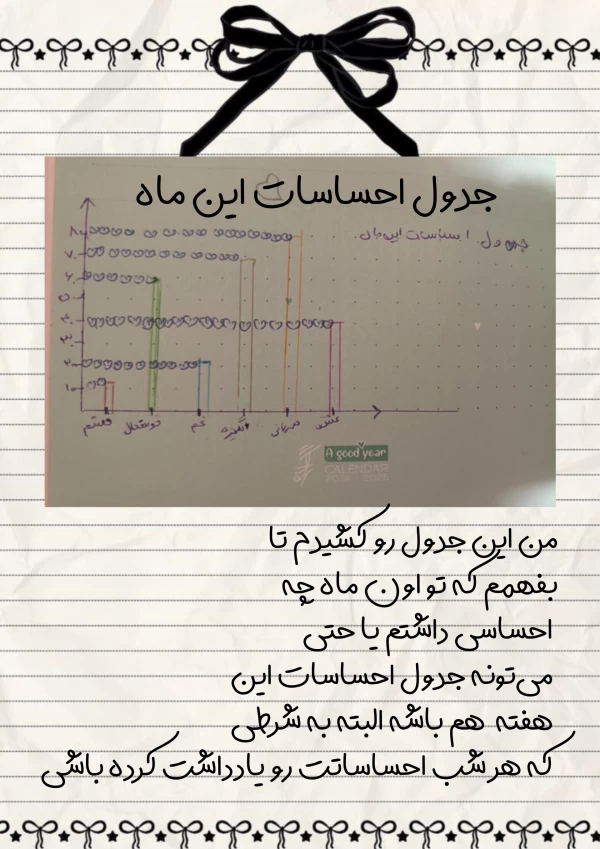 جدول احساسات این ماه
جدول احساسات این ماه.
۸۰
۷۰
۶۰
۵۰
۴۰
۳۰
۲۰
۱۰
خشم خوشحال غم انگیزه مهربانی عشق
A good year
CALENDAR
من این جدول رو کشیدم تا
بفهمم که تو اون ماه چه
احساسی داشتم یا حتی
می‌تونه جدول احساسات این
هفته هم باشه البته به شرطی
که هر شب احساساتت رو یادداشت کرده باشی